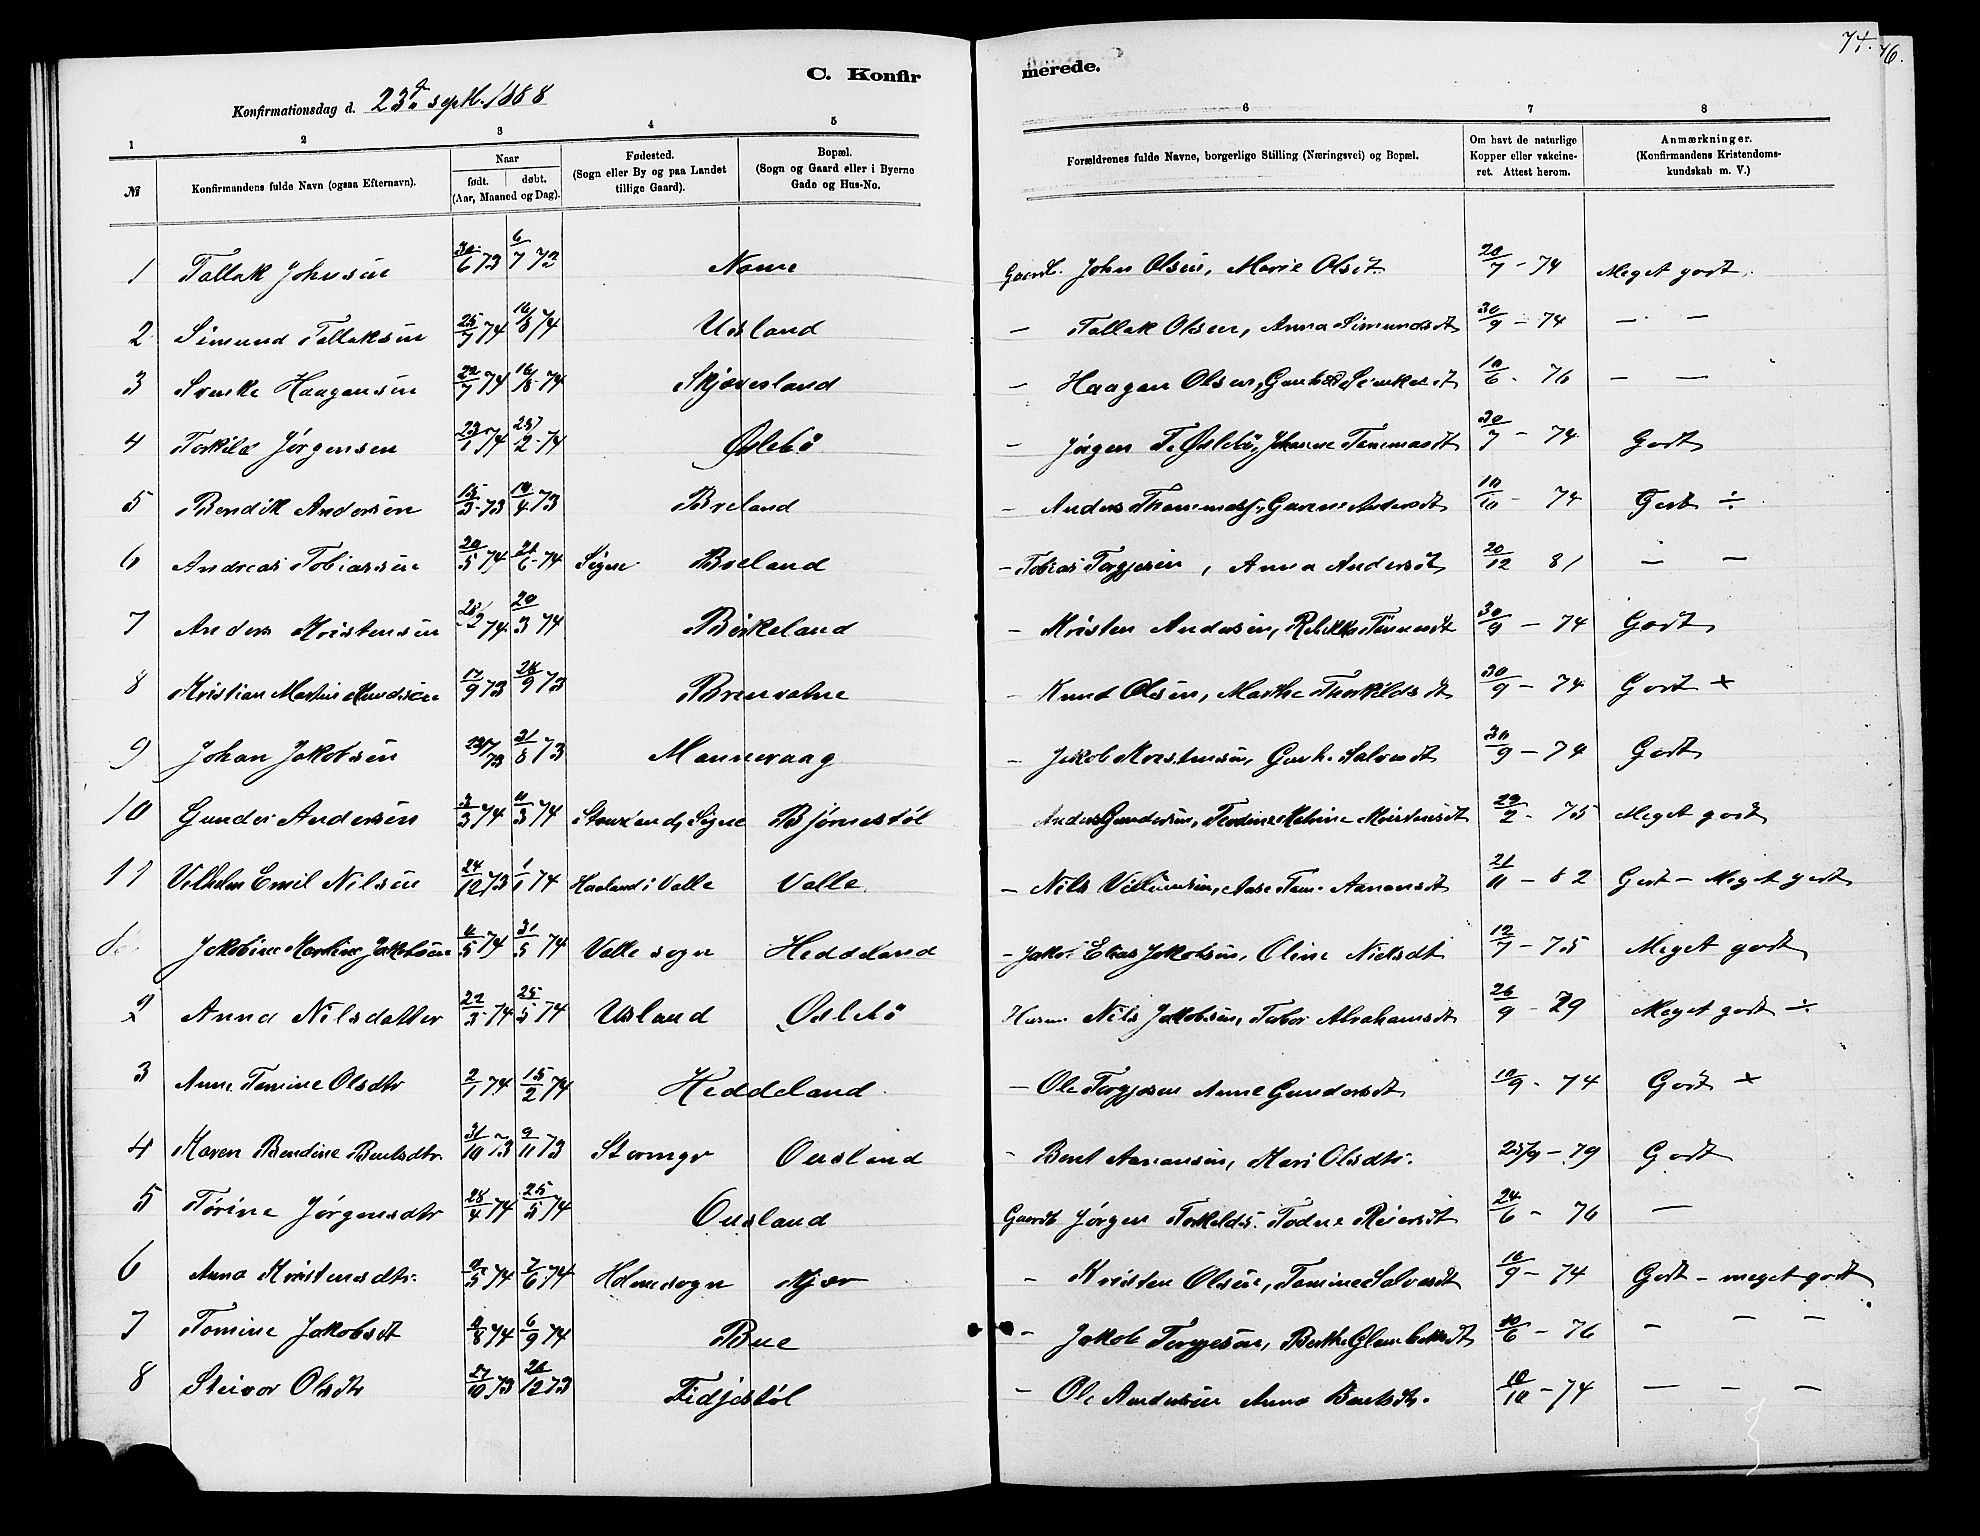 74. 76.
C. Konfirmerede.
Konfirmationsdag d. 23d septb. 1888
1 2 3 4 5 6 7 8
№ Konfirmandens fulde Navn (ogsaa Efternavn). Naar født. døbt. (Aar, Maaned og Dag). Fødested. (Sogn eller By og paa Landet tillige Gaard). Bopæl. (Sogn og Gaard eller i Byerne Gade og Hus-No. Forældrenes fulde Navne, borgerlige Stilling (Næringsvei) og Bopæl. Om havt de naturlige Kopper eller vakcineret. Attest herom. Anmærkninger. (Konfirmandens Kristendomskundskab m. V.)
1 Tallak Johnsen 30/6 73 6/7 73 Nome Gaardb. John Olsen, Marie Olsdt. 20/7 - 74 Meget godt.
2 Simund Tallaksen 25/7 74 16/8 74 Usland - Tallak Olsen, Anna Simundsdt 30/9 - 74 - -
3 Svenke Haagensen 22/7 74 16/8 - 74 Skjævesland - Haagen Olsen, 10/6 - 76 - -
4 Torkild Jørgensen 23/1 74 2 - 74 Øslebø - Jørgen T. Øslebø, Johanne Tommasdt 30/7 - 74 Godt
5 Bendik Andersen 15/3 - 73 14/4 73 Breland - Anders Thommass., Gurine Andersdt 10/10 - 74 Godt ÷
6 Andreas Tobiassen 20/5 74 21/6 - 74 Søgne Breland - Tobias Torgjesen, Anna Andersdt 20/12 81 - -
7 Anders Kristensen 28/2 74 20/3 74 Birkeland - Kristen Andersen, Rebekka 30/9 - 74 Godt
8 Kristian Martin Knudsen 17/9 73 28/9 73 Brenvatne - Knud Olsen, Marthe Thorkildsdt 30/9 - 74 Godt +
9 Johan Jakobsen 23/7 73 31/8 73 Mannevaag - Jakob Kristensen, Gunh. Salvesdt 30/9 - 74 Godt
10 Gunder Andersen 3/3 74 11/3 74 Søgne Bjørnestøl Anders Gundersen, Kristensdt 2 - 75 Meget godt
11 Vilhelm Emil Nilsen 24/12 73 1/1 74 Haaland i Valle Valle - Nils Villumsen, Aase Tom. Aanensdt 21/11 - 82 Godt - Meget godt
Jakobine Martine Jakobsen 11/5 74 31/5 74 Valle sogn Heddeland - Jakob Elias Jakobsen, Oline Nielsdt 12/7 - 75 Meget godt
2 Anna Nilsdatter 22/3 - 74 25/5 74 Usland Øslebø Husm. Nils Jakobsen, Tobor Abrahamsdt 26/9 - 79 Meget godt ÷
3 Anne Tomine Olsdtr 2/1 74 15/2 74 Heddeland - Ole Torgjesen Anne Gundersdt 10/9 - 74 Godt +
4 Karen Bendine Bentsdtr. 31/10 73 9/11 73 Ousland - Bent Aanansen, Kari Olsdtr. 25/9 - 79 Godt
5 Torine Jørgensdtr 28/4 74 25/5 74 Ousland Gaardb Jørgen Torkelds. Todne Reiersdt 24/6 - 76 -
6 Anna Kristensdtr. 5 74 7/6 74 Holmesogn Kjær - Kristen Olsen, Tomine Salvesdt 10/9 - 74 Godt - meget godt
7 Tomine Jakobsdt 9/8 74 6/9 74 Bue - Jakob Torgjesen, Berthe 10/6 - 76 - - -
8 Steivor Olsdtr 27/10 73 12 73 Fidjestøl - Ole Andersen Anna Bentsdtr. 10/10 - 74 - - -